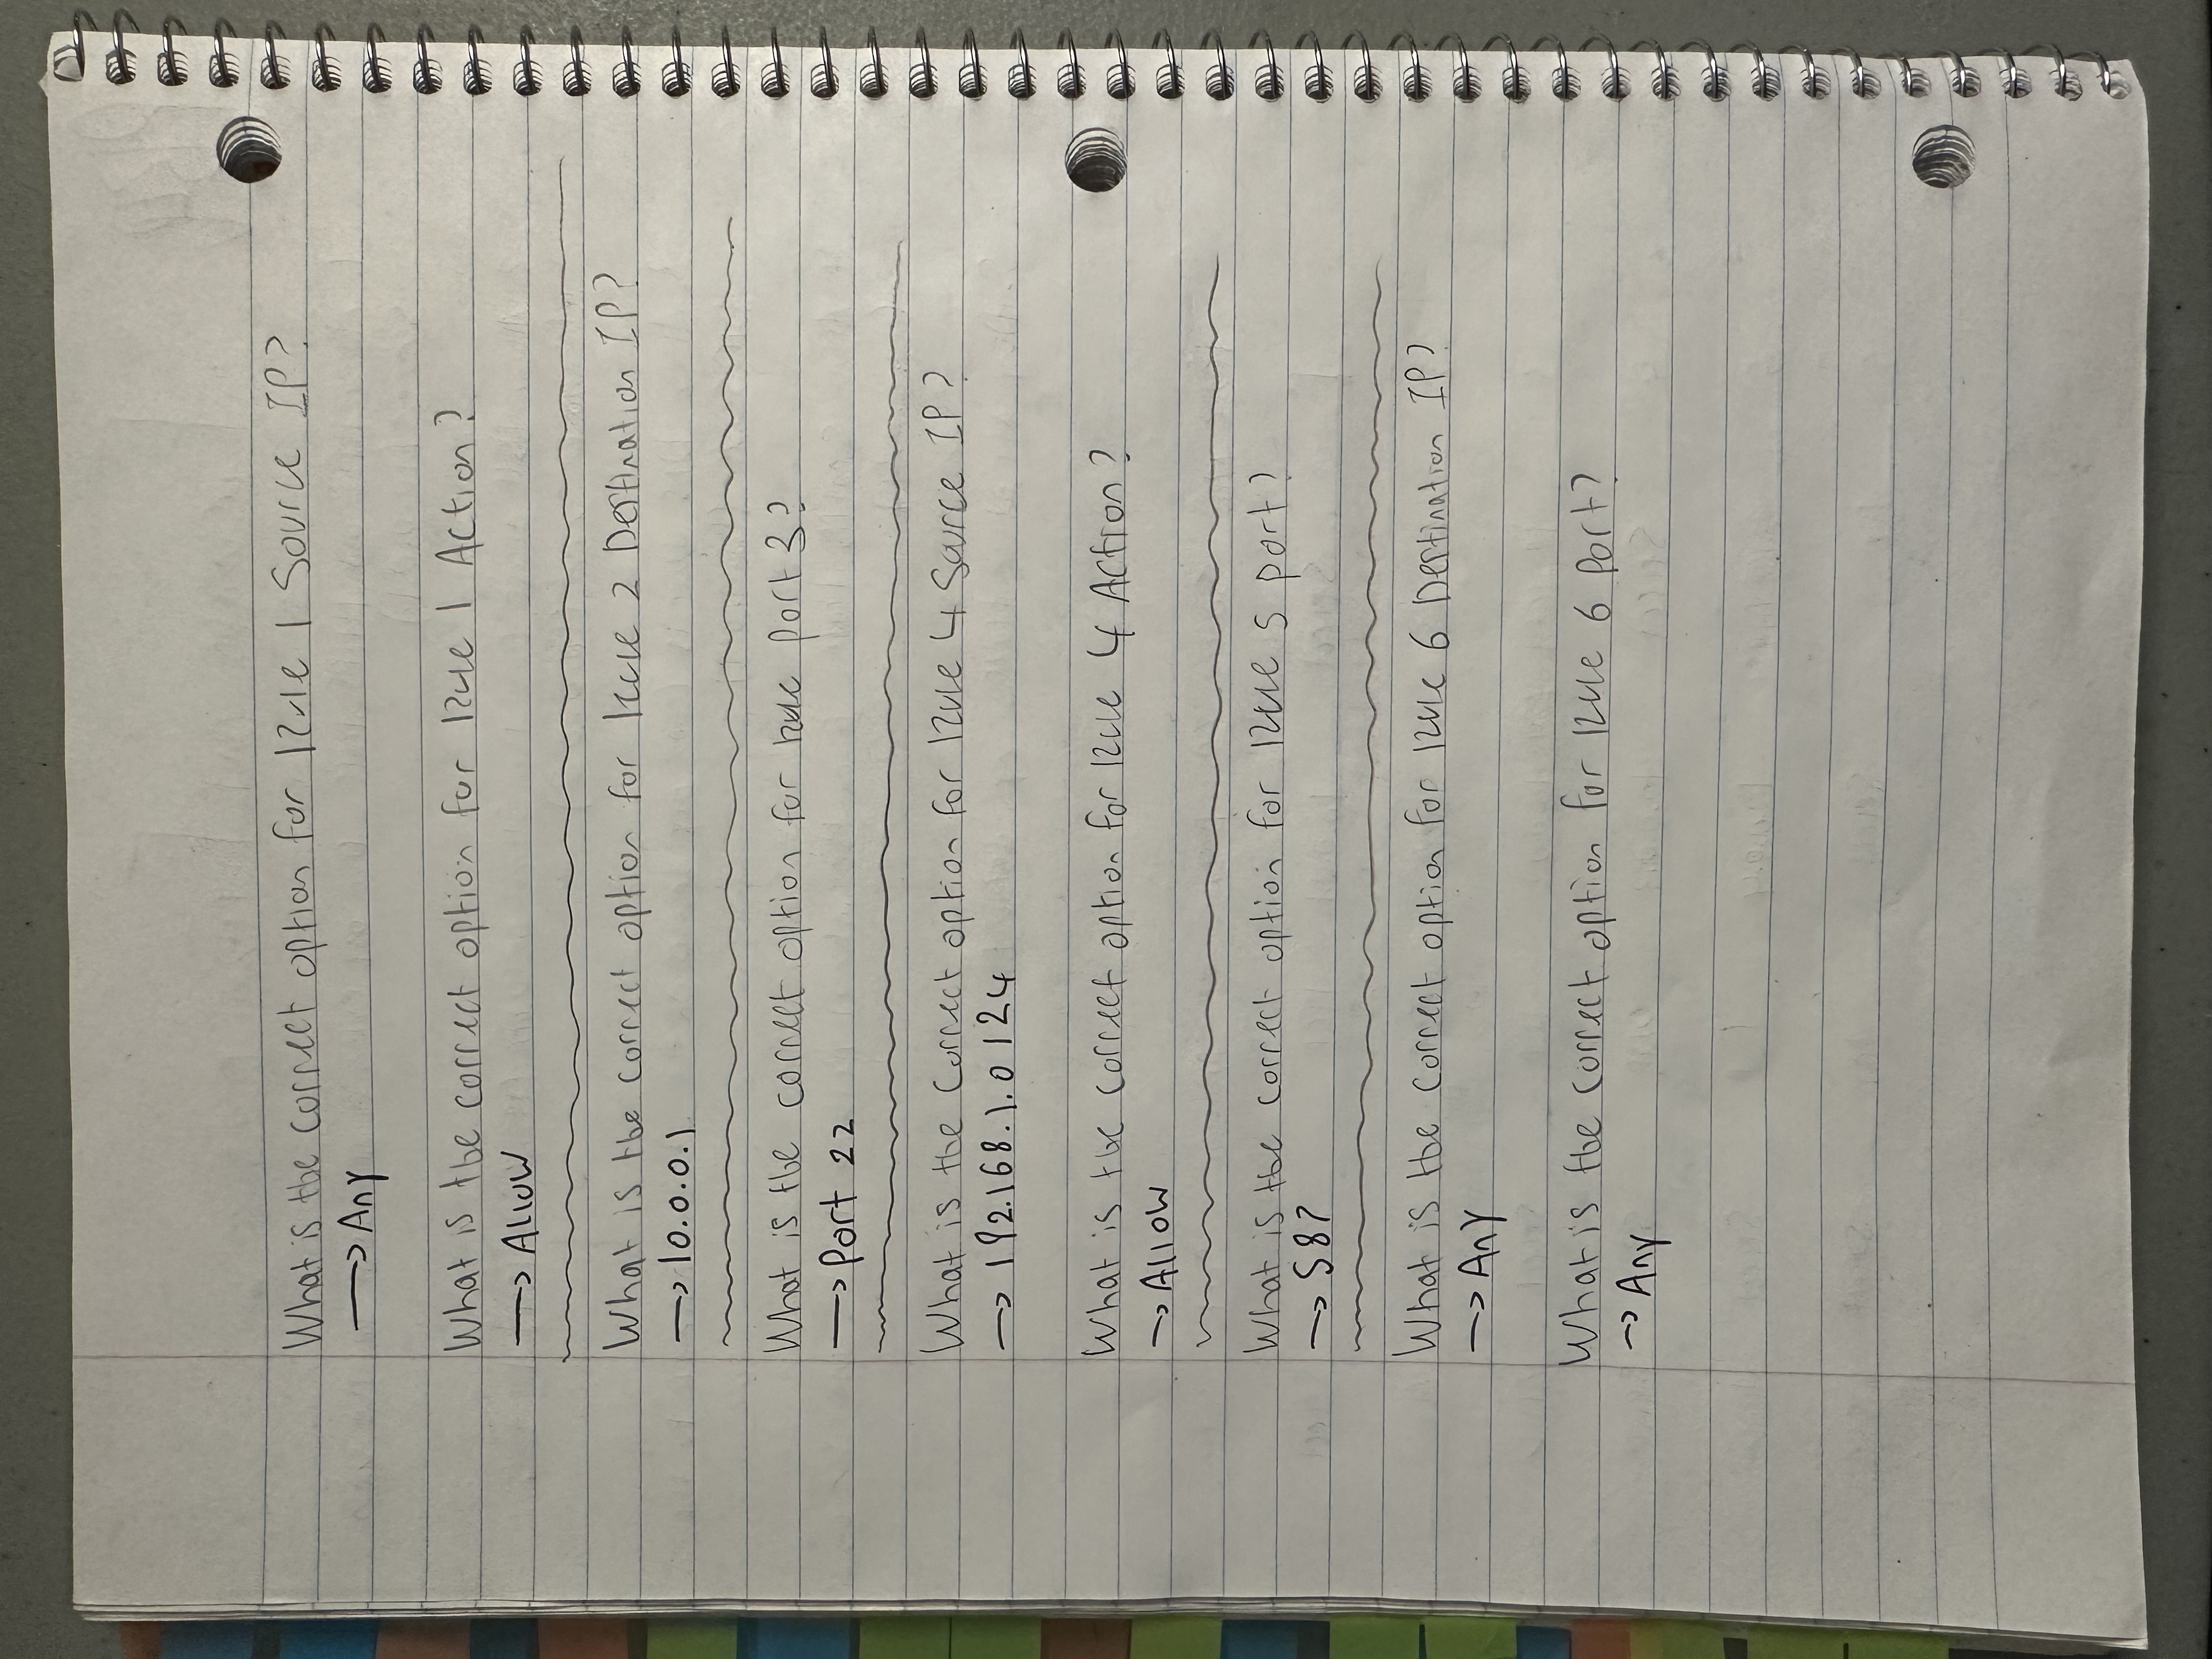 What is the correct option for Rule 1 Source IP?
→ Any
What is the correct option for Rule 1 Action?
→ Allow
What is the correct option for Rule 2 Destination IP?
→ 10.0.0.1
What is the correct option for Rule port 3?
→ Port 22
What is the correct option for Rule 4 Source IP?
→ 192.168.1.0/24
What is the correct option for Rule 4 Action?
→ Allow
What is the correct option for Rule 5 port?
→ 587
What is the correct option for Rule 6 Destination IP?
→ Any
What is the correct option for Rule 6 Port?
→ Any